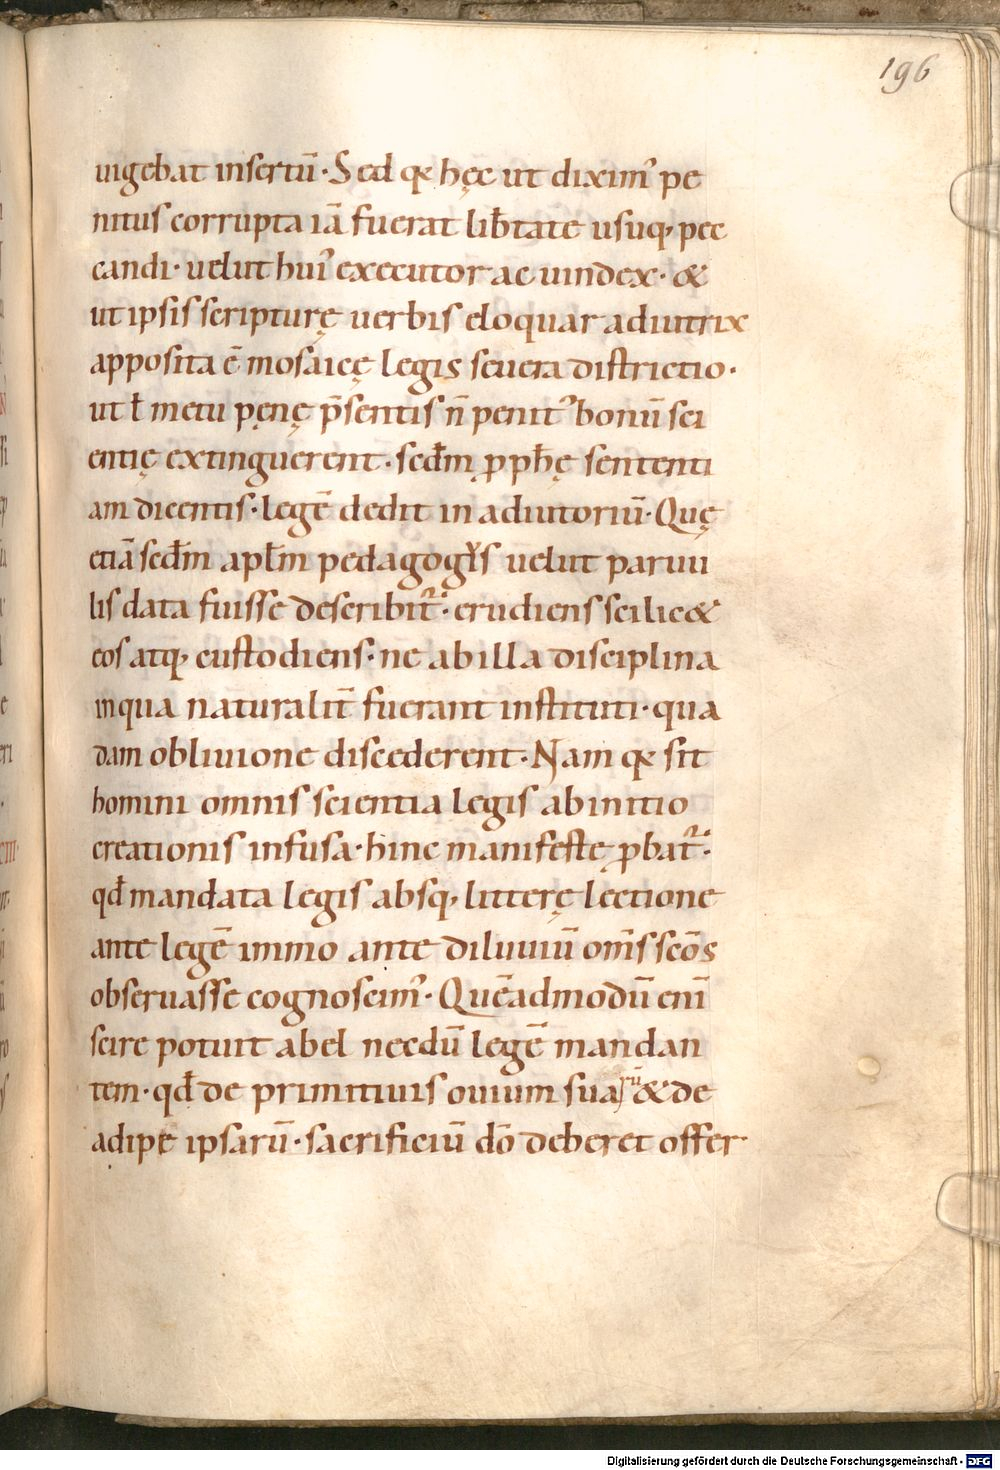 196
uigebat insertū. Sed qꝛ hęc ut diximꝰ pe
nitus corrupta iā fuerat lib̄tate usuq; pec
candi. uelut huiꝰ executor ac uindex. &
ut ipsis scripturę uerbis eloquar adiutrix
apposita ē mosaicę legis seuera districtio.
ut ł metu pęnę p̄sentis n̄ penitꝰ bonū sci
entię extinguerent. scd̄m ꝓph̄ę sententi
am dicentis. legē dedit in adiutoriū. Quę
etiā scd̄m apłm pedagogꝰs uelut paruu
lis data fuisse describit᷑. erudiens scilic&
eos atq; custodiens. ne ab illa disciplina
in qua naturalit̄ fuerant instituti. qua
dam obliuione discederent. Nam qꝛ sit
homini omnis scientia legis ab initio
creationis infusa. hinc manifestę ꝓbat᷑.
qđ mandata legis absq; litterę lectione
ante legē immo ante diluuiū om̄s scōs
obseruasse cognoscimꝰ. Quēadmodū eni̅
scire potuit abel necdū legē mandan
tem. qđ de primitiuis ouium suarū & de
adipe ipsarū. sacrificiū dō deberet offer
Digitalisierung gefördert durch die Deutsche Forschungsgemeinschaft - DFG